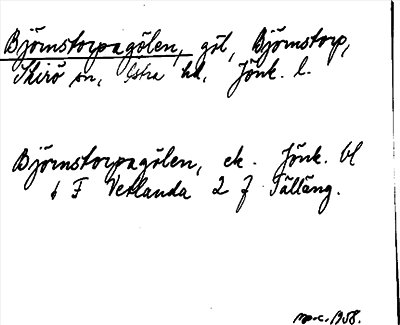 Björnstorpagölen, göl, Björnstorp,
Skirö sn, Östra hd, Jönk. l.
Björnstorpagölen, ek. Jönk. bl
6 F Vetlanda 2 f Tälläng.
1958.